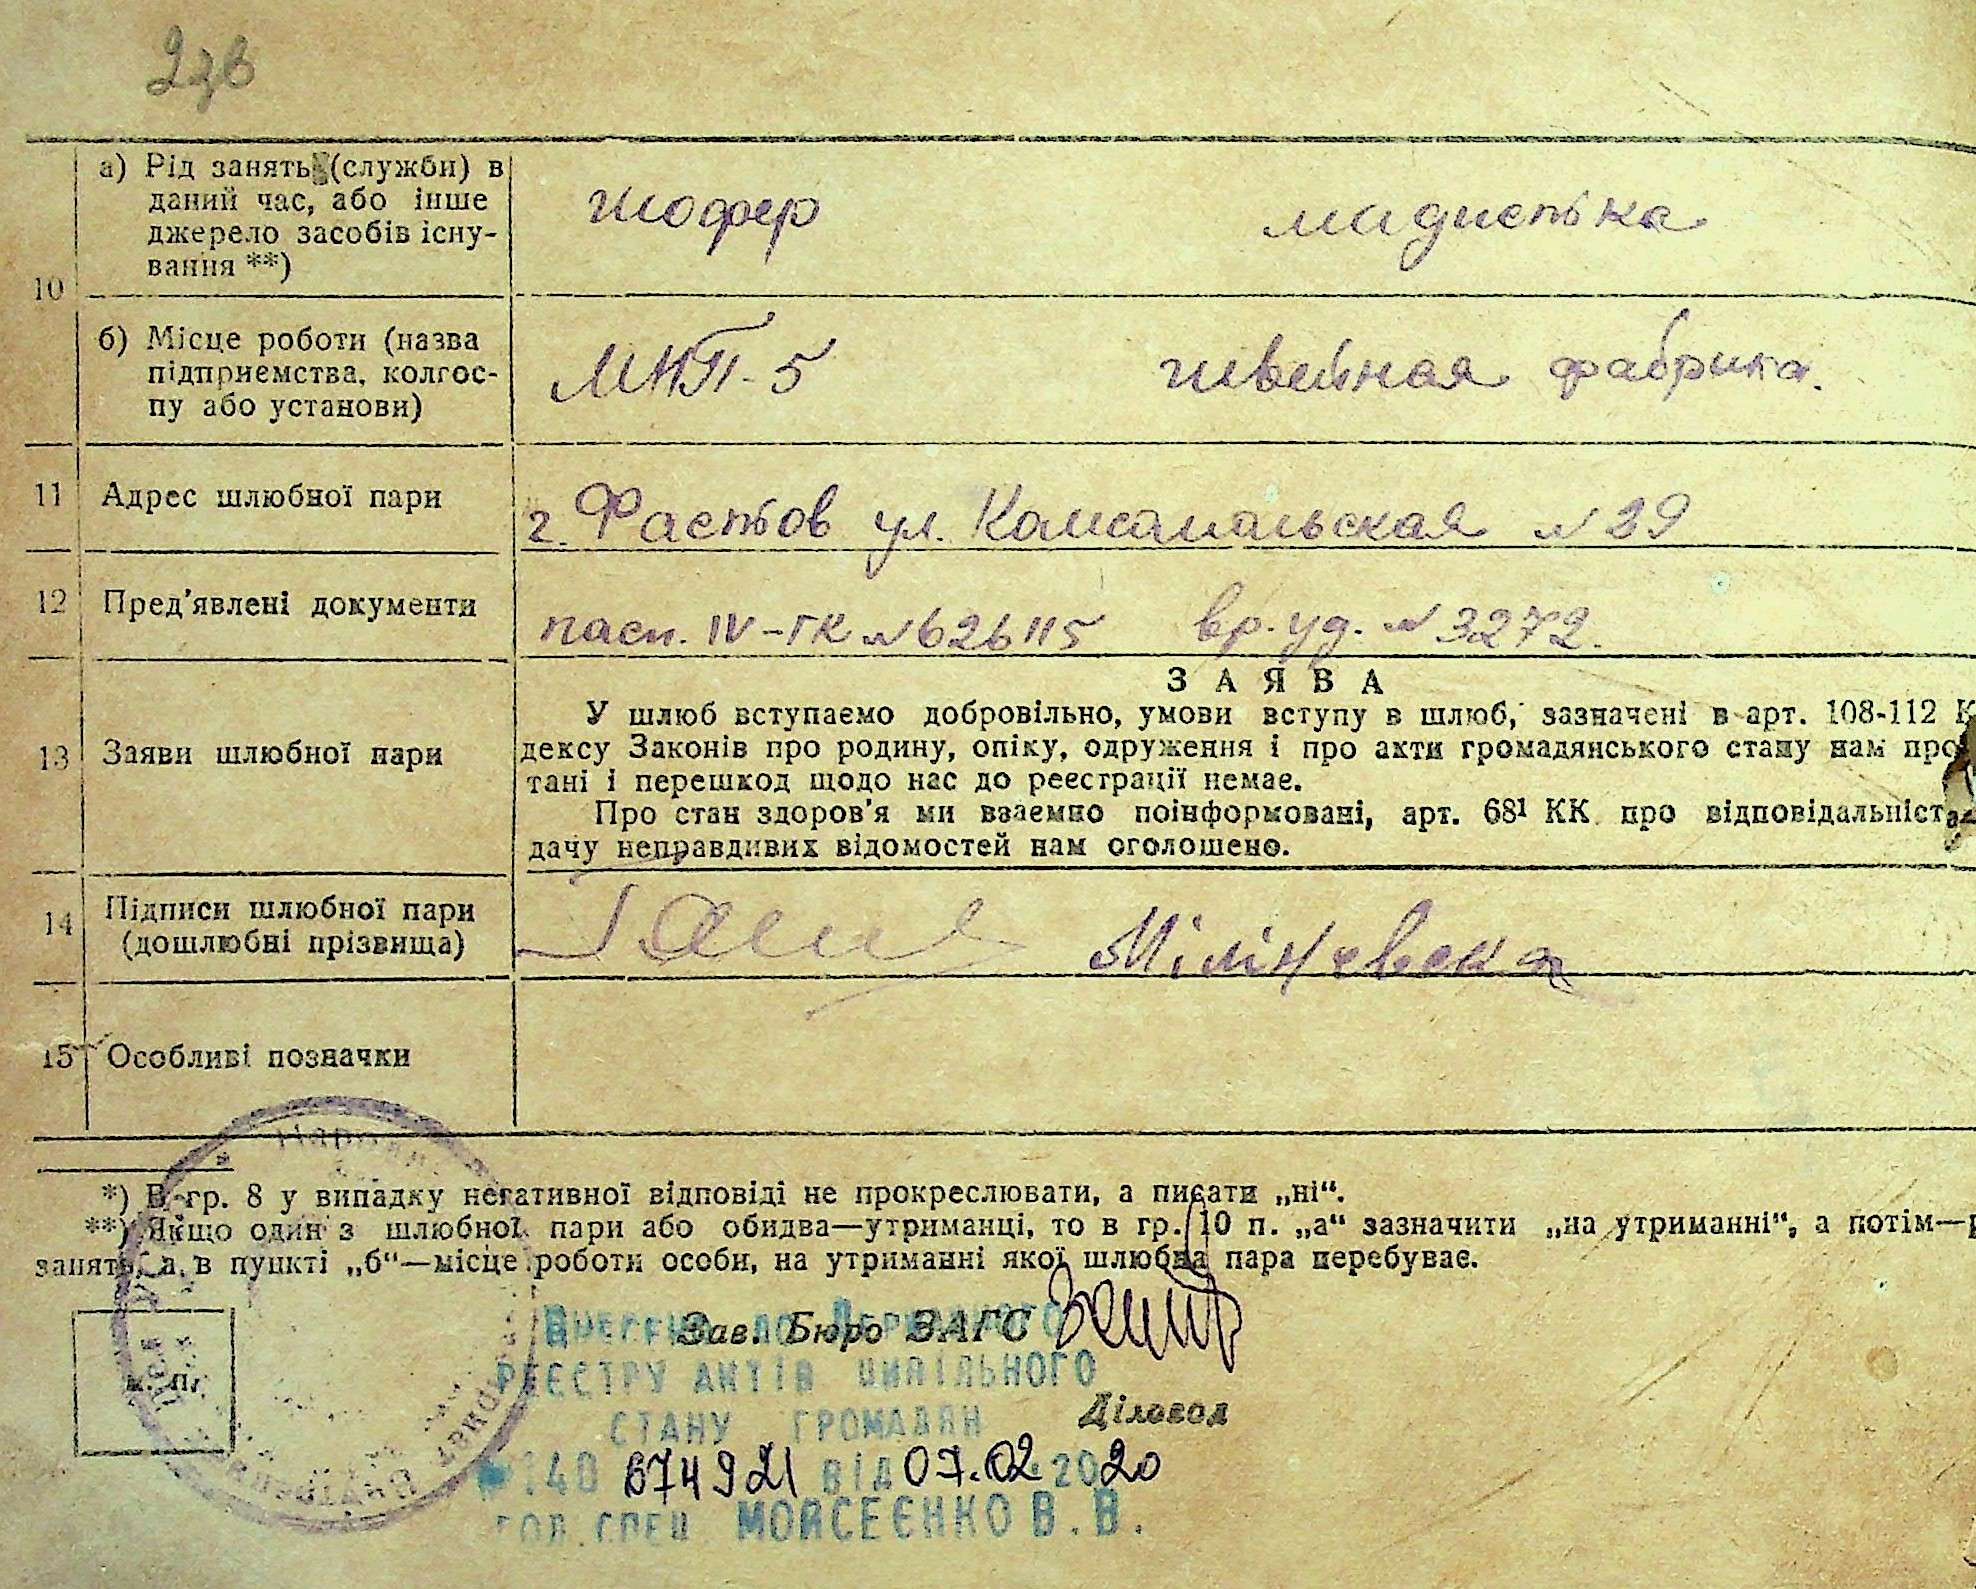 2зв
а) Рід занять (служби) в
даний час, або інше
джерело засобів існу-
вання **)
шофер
мадистка
10
б) Місце роботи (назва
підприємства, колгос-
пу або установи)
МНП-5
швейная фабрика.
11 Адрес шлюбної пари
г. Фастов ул. Камсамольская № 39
12 Пред'явлені документи
пасп. IV-ГК № 626115 вр. уд. № 3272.
13 Заяви шлюбної пари
ЗАЯВА
У шлюб вступаємо добровільно, умови вступу в шлюб, зазначені в арт. 108-112 К
дексу Законів про родину, опіку, одруження і про акти громадянського стану нам про
тані і перешкод щодо нас до реєстрації немає.
Про стан здоров'я ми взаємно поінформовані, арт. 68¹ КК про відповідальніст
дачу неправдивих відомостей нам оголошено.
14 Підписи шлюбної пари
(дошлюбні прізвища)
15 Особливі позначки
*) В гр. 8 у випадку негативної відповіді не прокреслювати, а писати „ні“.
**) Якщо один з шлюбної пари або обидва—утриманці, то в гр. 10 п. „а“ зазначити „на утриманні“, а потім—р
занять, а в пункті „б“—місце роботи особи, на утриманні якої шлюбна пара перебуває.
Зав. Бюро ЗАГС
Внесено до Державного
РЕЄСТРУ АКТІВ ЦИВІЛЬНОГО
м. п.
СТАНУ ГРОМАДЯН
Діловод
140 674921 від 07.02 2020
ГОЛ. СПЕЦ. МОЙСЕЄНКО В. В.